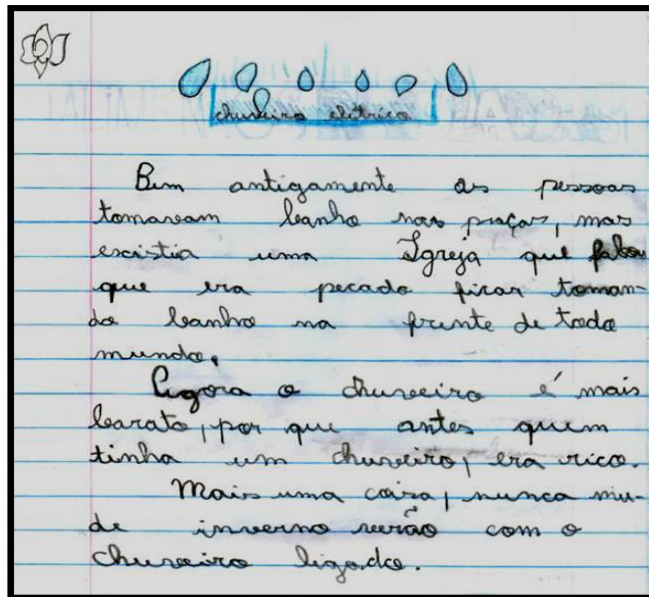 chuveiro elétrico
Bem antigamente as pessoas
tomavam banho nas praças, mas
existia uma Igreja que falou
que era pecado ficar toman-
do banho na frente de todo
mundo.
Agora o chuveiro é mais
barato, por que antes quem
tinha um chuveiro, era rico.
Mais uma coisa, nunca mu-
de inverno verão com o
chuveiro ligado.